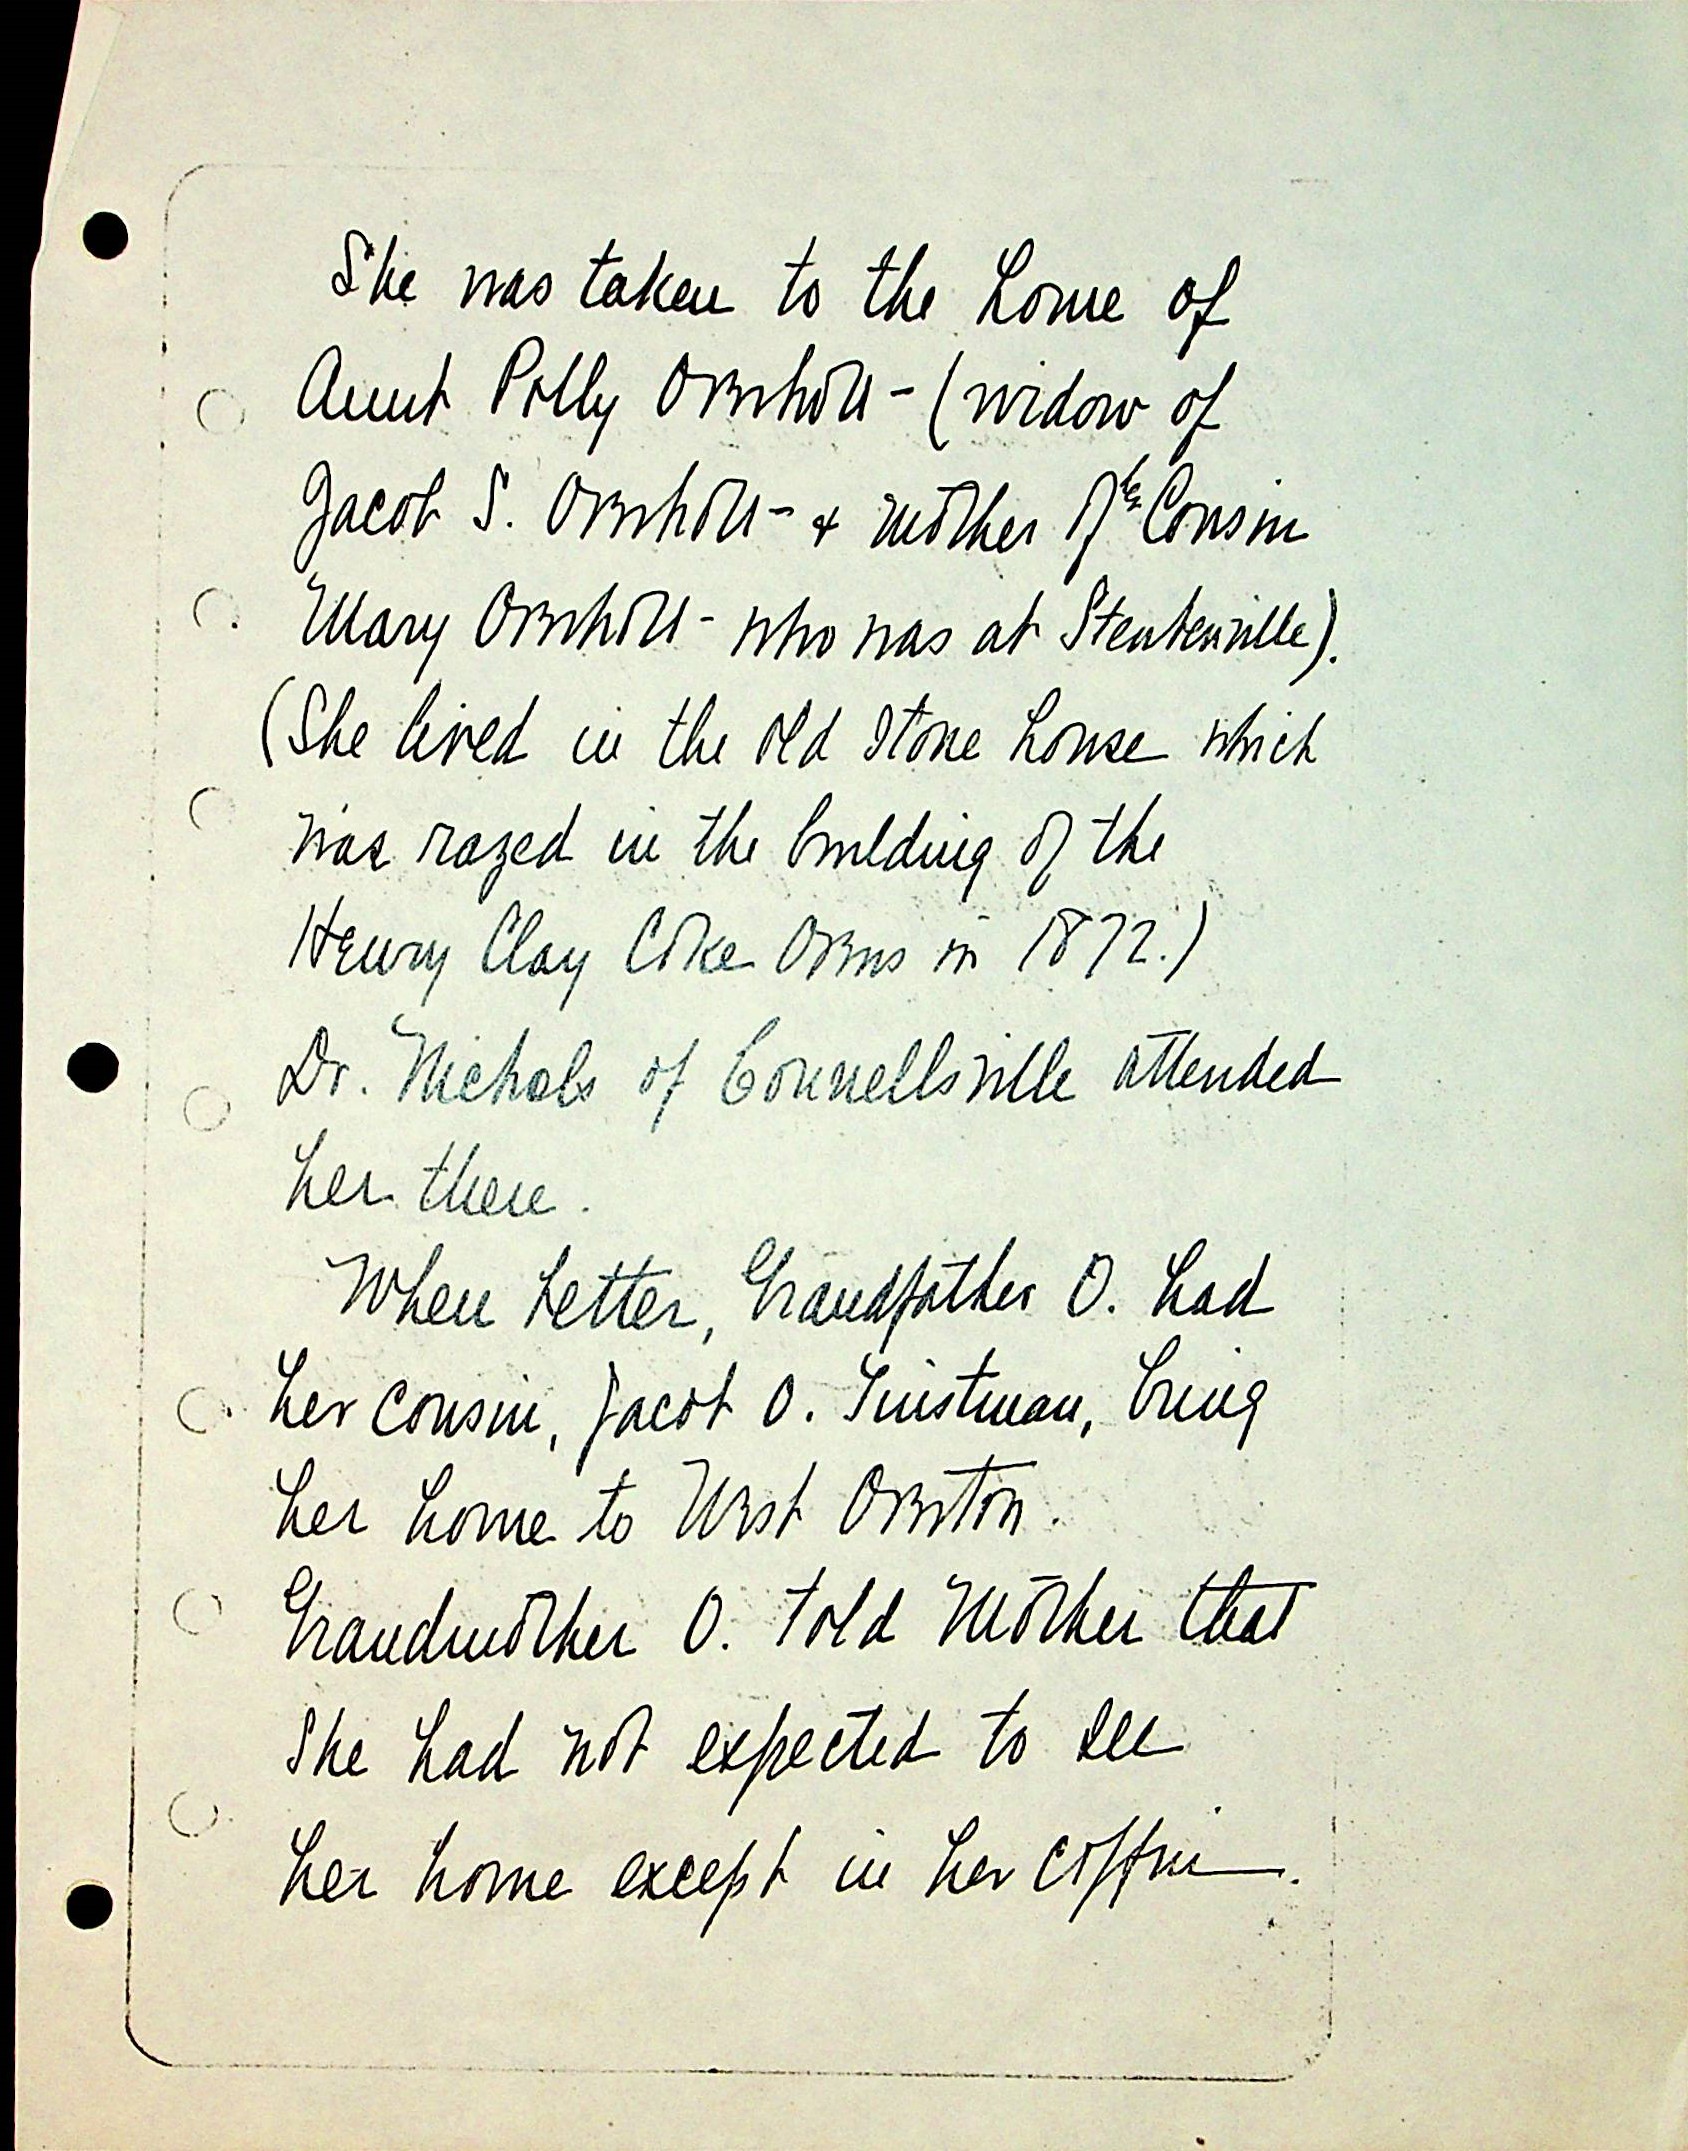 She was taken to the home of
Aunt Polly Overholt - (widow of
Jacob S. Overholt - + mother of the Cousin
Mary Overholt - who was at Steubenville).
(She lived in the old stone house which
was razed in the building of the
Henry Clay Coke Ovens in 1872.)
Dr. Nichols of Connellsville attended
her there.
When better, Grandfather O. had
her cousin, Jacob O. Tinstman, bring
her home to West Overton.
Grandmother O. told Mother that
she had not expected to see
her home except in her coffin.